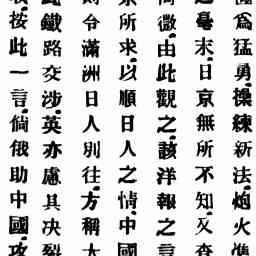 爲猛勇、操練新法、炮火準
之毫末、日京無所不知、又查
微、由此觀之、該洋報之言
所求、以順日人之情、中國
則令滿洲日人別往、方稱大
鐵路交涉、英亦慮其决裂
按此一言、倘俄助中國、攻